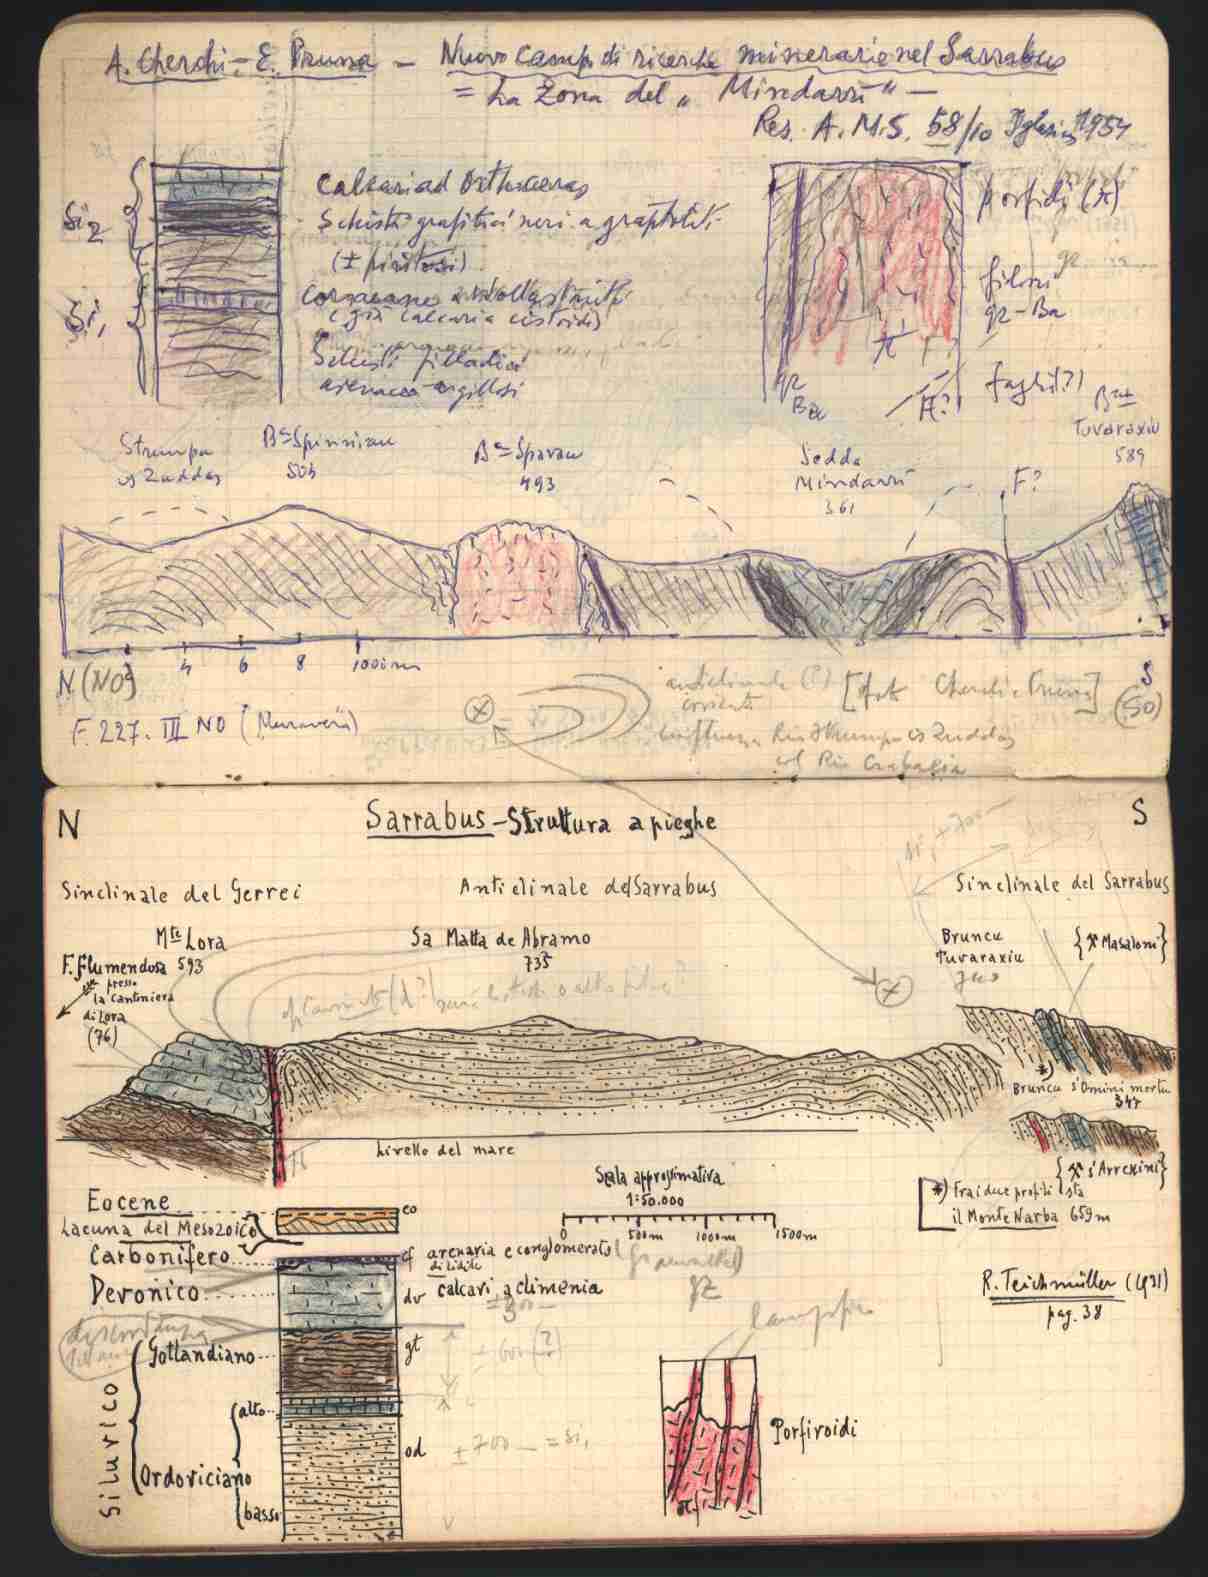 A. Cherchi - E. Pruna - Nuovo campo di ricerche minerarie nel Sarrabus
= La Zona del "Mindarri" -
Res. A.M.S. 58/10 Iglesias 1954
Si2
Si1
Calcari ad Orthoceras
Schisti grafitici neri a graptoliti
(± piritosi)
Corneane a wollastonite
(già calcari a cistoidi)
Schisti filladici
arenacei argillosi
porfidi (π)
filoni
qz-Ba
faglie(?)
π
qz
Ba
F?
Strumpu
is Zuddas
Bcu Spinniau
504
Bcu Sparau
493
Sedda
Mindarri
361
F?
Bcu
Tuvaraxiu
589
4
6
8
1000 m
N (NO)
S
(SO)
F. 227. III NO (Muravera)
anticlinale (?)
[prof. Cherchi e Pruna]
confluenza Rio Strumpu is Zuddas
col Rio
N
Sarrabus - Struttura a pieghe
S
Sinclinale del Gerrei
Anticlinale del Sarrabus
Sinclinale del Sarrabus
Mte Lora
593
Sa Matta de Abramo
735
Bruncu
Tuvaraxiu
{⚒ Masaloni}
F. Flumendosa
presso
la Cantoniera
di Lora
(76)
*)
Bruncu s'Omini mortu
347
Livello del mare
{⚒ s'Arrexini}
*) Fra i due profili sta
il Monte Narba 659 m
Scala approssimativa
1:50.000
0 500m 1000m 1500m
Eocene
eo
Lacuna del Mesozoico
Carbonifero
cf arenaria e conglomerato
di lidite
Devonico
dv calcari a climenia
gz
lamprofiro
R. Teichmüller (1931)
pag. 38
discordanza
Gotlandiano
gt
± 600 (?)
Silurico
alto
Ordoviciano
od
± 700 = Si1
basso
Porfiroidi
π